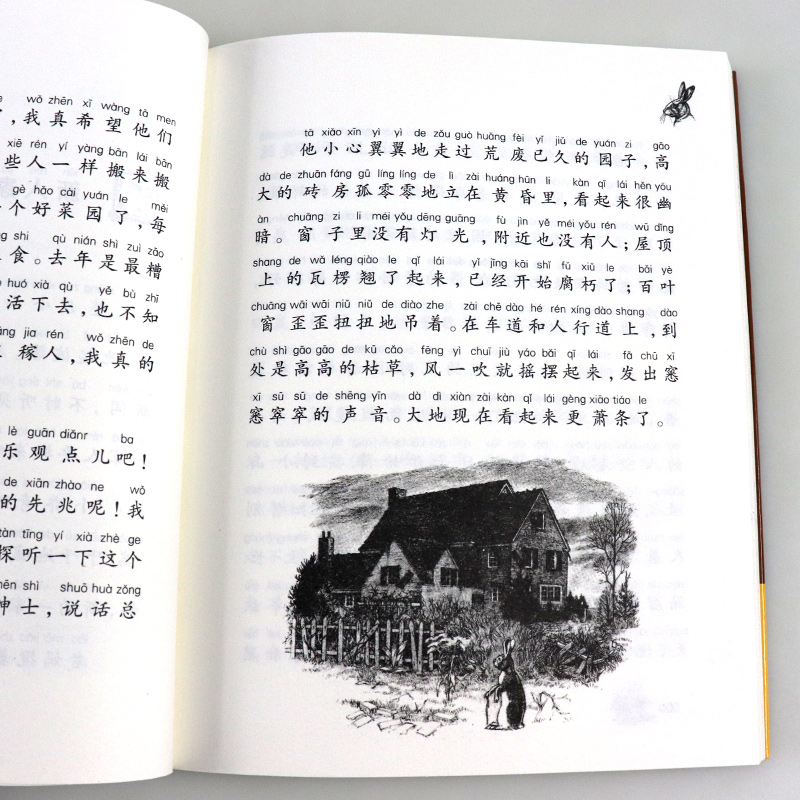 wǒ zhēn xī wàng tā men
，我真希望他们
xiē rén yí yàng bān lái bān
些人一样搬来搬
gè hǎo cài yuán le měi
个好菜园了，每
shi qù nián shì zuì zāo
食。去年是最糟
huó xià qù yě bù zhī
活下去，也不知
jia rén wǒ zhēn de
稼人，我真的
lè guān diǎnr ba
乐观点儿吧！
de xiān zhào ne wǒ
的先兆呢！我
tàn tīng yí xià zhè ge
探听一下这个
shì shuō huà zǒng
绅士，说话总
tā xiǎo xīn yì yì de zǒu guò huāng fèi yǐ jiǔ de yuán zi gāo
他小心翼翼地走过荒废已久的园子，高
dà de zhuān fáng gū líng líng de lì zài huáng hūn lǐ kàn qǐ lái hěn yōu
大的砖房孤零零地立在黄昏里，看起来很幽
àn chuāng zi li méi yǒu dēng guāng fù jìn yě méi yǒu rén wū dǐng
暗。窗子里没有灯光，附近也没有人；屋顶
shang de wǎ léng qiào le qǐ lái yǐ jīng kāi shǐ fǔ xiǔ le bǎi yè
上的瓦楞翘了起来，已经开始腐朽了；百叶
chuāng wāi wāi niǔ niǔ de diào zhe zài chē dào hé rén xíng dào shang dào
窗歪歪扭扭地吊着。在车道和人行道上，到
chù shì gāo gāo de kū cǎo fēng yì chuī jiù yáo bǎi qǐ lái fā chū xī
处是高高的枯草，风一吹就摇摆起来，发出窸
xī sū sū de shēng yīn dà dì xiàn zài kàn qǐ lái gèng xiāo tiáo le
窸窣窣的声音。大地现在看起来更萧条了。